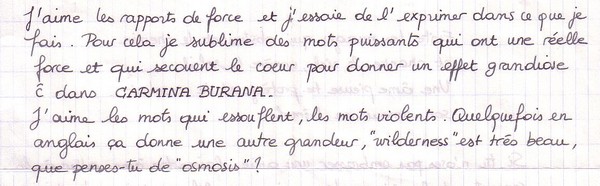 J'aime les rapports de force et j'essaie de l'exprimer dans ce que je
fais. Pour cela je sublime des mots puissants qui ont une réelle
force et qui secouent le coeur pour donner un effet grandiose
c̄ dans CARMINA BURANA.
J'aime les mots qui essouflent, les mots violents. Quelquefois en
anglais ça donne une autre grandeur, "wilderness" est très beau,
que penses-tu de "osmosis"?